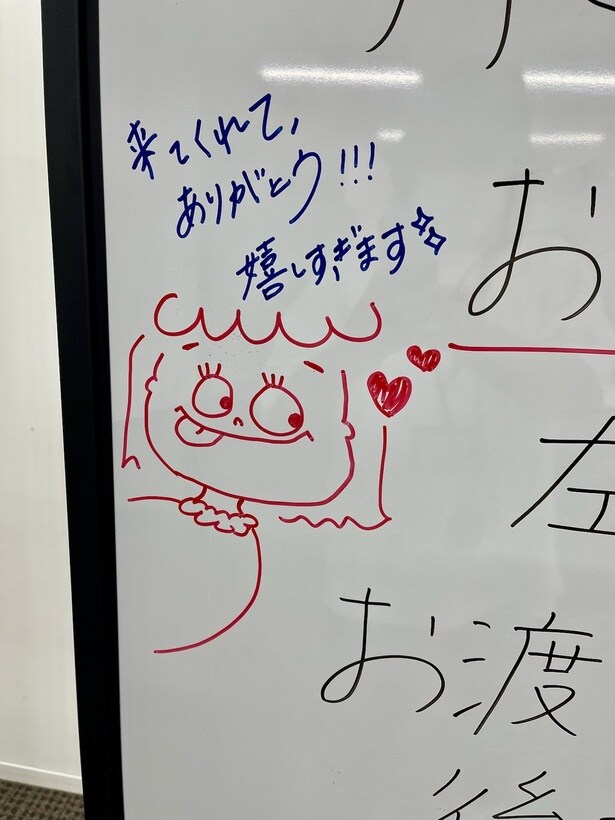 来てくれて、
ありがとう!!!
嬉しすぎます
お
左
お渡
後